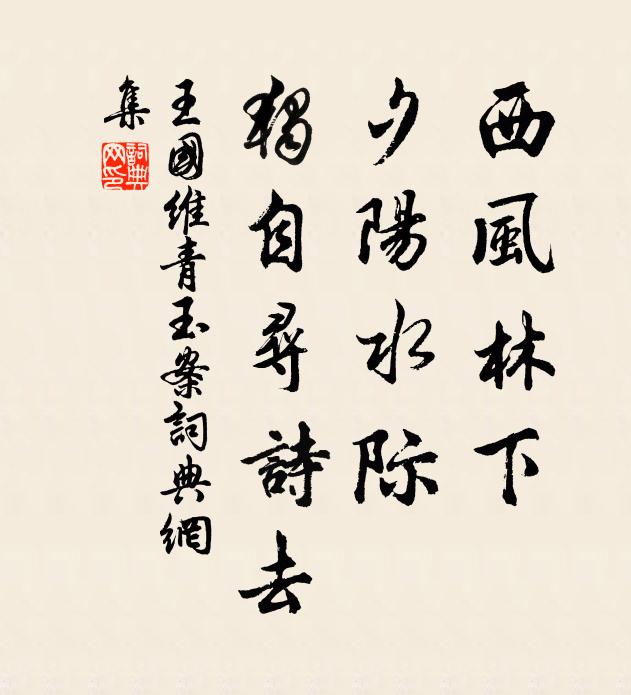 西風林下
夕陽水际
獨自尋詩去
王國維青玉案詞典網
集
詞典
网印